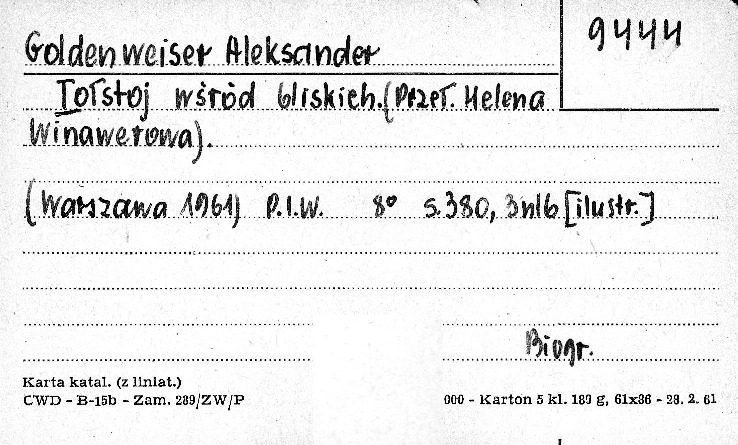 Goldenweiser Aleksander
9444
Tołstoj wśród bliskich. (Przeł. Helena
Winawerowa).
(Warszawa 1961) P.I.W. 8° s. 380, 3nlb [ilustr.]
Biogr.
Karta katal. (z liniat.)
CWD - B-15b - Zam. 289/ZW/P
000 - Karton 5 kl. 180 g, 61x86 - 28. 2. 61